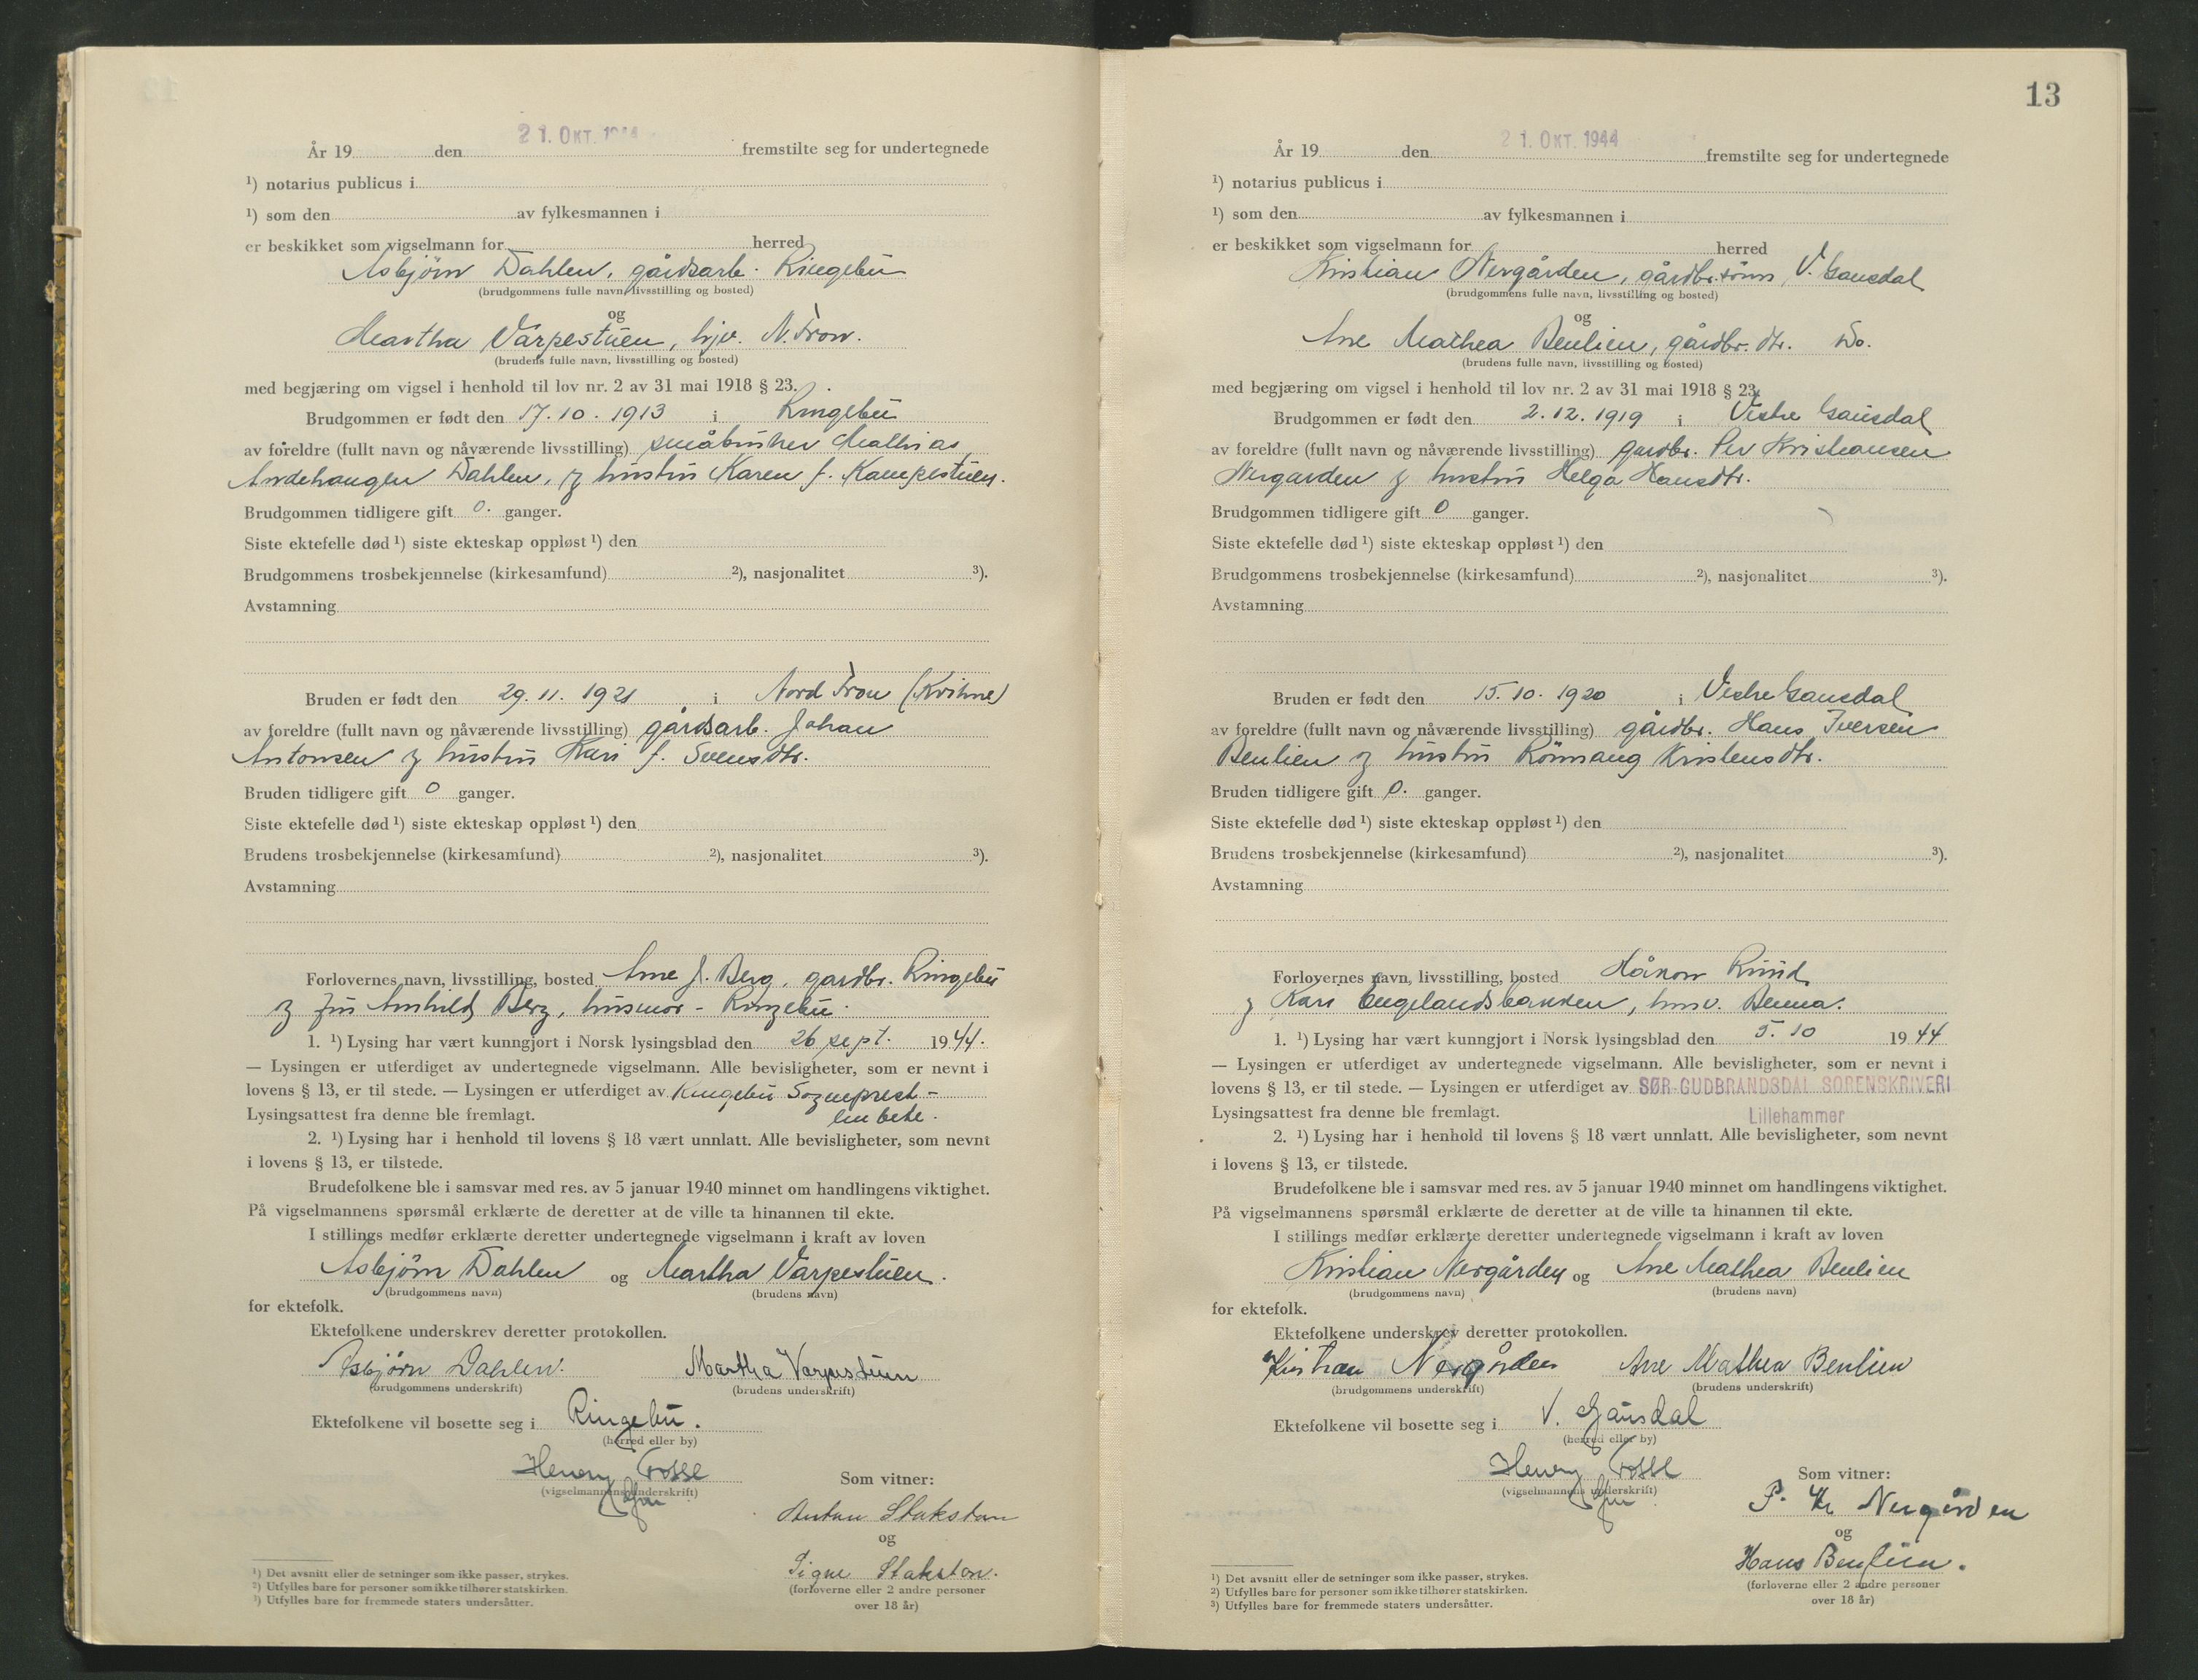 21. OKT. 1944
År 19 den fremstilte seg for undertegnede
¹) notarius publicus i
¹) som den av fylkesmannen i
er beskikket som vigselmann for herred
Asbjörn Dahlen, gårdsarb. Ringebu
(brudgommens fulle navn, livsstilling og bosted)
og
Martha Varpestuen, hjv. N. Fron.
(brudens fulle navn, livsstilling og bosted)
med begjæring om vigsel i henhold til lov nr. 2 av 31 mai 1918 § 23.
Brudgommen er født den 17.10.1913 i Ringebu
av foreldre (fullt navn og nåværende livsstilling) småbruker Mathias
Dahlen, og hustru Karen f. Kampestuen.
Brudgommen tidligere gift 0. ganger.
Siste ektefelle død ¹) siste ekteskap oppløst ¹) den
Brudgommens trosbekjennelse (kirkesamfund) ²), nasjonalitet ³).
Avstamning
Bruden er født den 29.11.1921 i Nord Fron (Kvikne)
av foreldre (fullt navn og nåværende livsstilling) gårdsarb. Johan
Antonsen og hustru Kari f. Svensdtr.
Bruden tidligere gift 0 ganger.
Siste ektefelle død ¹) siste ekteskap oppløst ¹) den
Brudens trosbekjennelse (kirkesamfund) ²), nasjonalitet ³).
Avstamning
Forlovernes navn, livsstilling, bosted Arne J. Berg, gardbr. Ringebu
og fru Berg, husmor - Ringebu.
1. ¹) Lysing har vært kunngjort i Norsk lysingsblad den 26 sept. 1944.
— Lysingen er utferdiget av undertegnede vigselmann. Alle bevisligheter, som er nevnt i
lovens § 13, er til stede. — Lysingen er utferdiget av Ringebu Sogneprest-
Lysingsattest fra denne ble fremlagt. embete.
2. ¹) Lysing har i henhold til lovens § 18 vært unnlatt. Alle bevisligheter, som nevnt
i lovens § 13, er tilstede.
Brudefolkene ble i samsvar med res. av 5 januar 1940 minnet om handlingens viktighet.
På vigselmannens spørsmål erklærte de deretter at de ville ta hinannen til ekte.
I stillings medfør erklærte deretter undertegnede vigselmann i kraft av loven
Asbjörn Dahlen og Martha Varpestuen.
(brudgommens navn) (brudens navn)
for ektefolk.
Ektefolkene underskrev deretter protokollen.
Asbjørn Dahlen. Martha Varpestuen
(brudgommens underskrift) (brudens underskrift)
Ektefolkene vil bosette seg i Ringebu.
(herred eller by)
Henry Fosse
(vigselmannens underskrift)
Som vitner:
Anton Stakston
og
Signe Stakston.
(forloverne eller 2 andre personer
over 18 år)
¹) Det avsnitt eller de setninger som ikke passer, strykes.
²) Utfylles bare for personer som ikke tilhører statskirken.
³) Utfylles bare for fremmede staters undersåtter.
13
21. OKT. 1944
År 19 den fremstilte seg for undertegnede
¹) notarius publicus i
¹) som den av fylkesmannen i
er beskikket som vigselmann for herred
Kristian Nergården, gårdbr.sönn, V. Gausdal
(brudgommens fulle navn, livsstilling og bosted)
og
Ane Mathea Benlien, gårdbr. dtr. Do.
(brudens fulle navn, livsstilling og bosted)
med begjæring om vigsel i henhold til lov nr. 2 av 31 mai 1918 § 23.
Brudgommen er født den 2.12.1919 i Vestre Gausdal
av foreldre (fullt navn og nåværende livsstilling) gardbr. Per Kristiansen
Nergarden og hustru Helga Hansdtr.
Brudgommen tidligere gift 0 ganger.
Siste ektefelle død ¹) siste ekteskap oppløst ¹) den
Brudgommens trosbekjennelse (kirkesamfund) ²), nasjonalitet ³).
Avstamning
Bruden er født den 15.10.1920 i Vestre Gausdal
av foreldre (fullt navn og nåværende livsstilling) gårdbr. Hans Iversen
Benlien og hustru Rönnaug Kristensdtr.
Bruden tidligere gift 0. ganger.
Siste ektefelle død ¹) siste ekteskap oppløst ¹) den
Brudens trosbekjennelse (kirkesamfund) ²), nasjonalitet ³).
Avstamning
Forlovernes navn, livsstilling, bosted Håkon Ruud
og Kari Engelandsbakken,
1. ¹) Lysing har vært kunngjort i Norsk lysingsblad den 5.10 1944
— Lysingen er utferdiget av undertegnede vigselmann. Alle bevisligheter, som er nevnt i
lovens § 13, er til stede. — Lysingen er utferdiget av SØR-GUDBRANDSDAL SORENSKRIVERI
Lysingsattest fra denne ble fremlagt. Lillehammer
2. ¹) Lysing har i henhold til lovens § 18 vært unnlatt. Alle bevisligheter, som nevnt
i lovens § 13, er tilstede.
Brudefolkene ble i samsvar med res. av 5 januar 1940 minnet om handlingens viktighet.
På vigselmannens spørsmål erklærte de deretter at de ville ta hinannen til ekte.
I stillings medfør erklærte deretter undertegnede vigselmann i kraft av loven
Kristian Nergården og Ane Mathea Benlien
(brudgommens navn) (brudens navn)
for ektefolk.
Ektefolkene underskrev deretter protokollen.
Kristian Nergården Ane Mathea Benlien
(brudgommens underskrift) (brudens underskrift)
Ektefolkene vil bosette seg i V. Gausdal
(herred eller by)
Henry Fosse
(vigselmannens underskrift)
Som vitner:
P. Kr Nergården
og
Hans Benlien.
(forloverne eller 2 andre personer
over 18 år)
¹) Det avsnitt eller de setninger som ikke passer, strykes.
²) Utfylles bare for personer som ikke tilhører statskirken.
³) Utfylles bare for fremmede staters undersåtter.